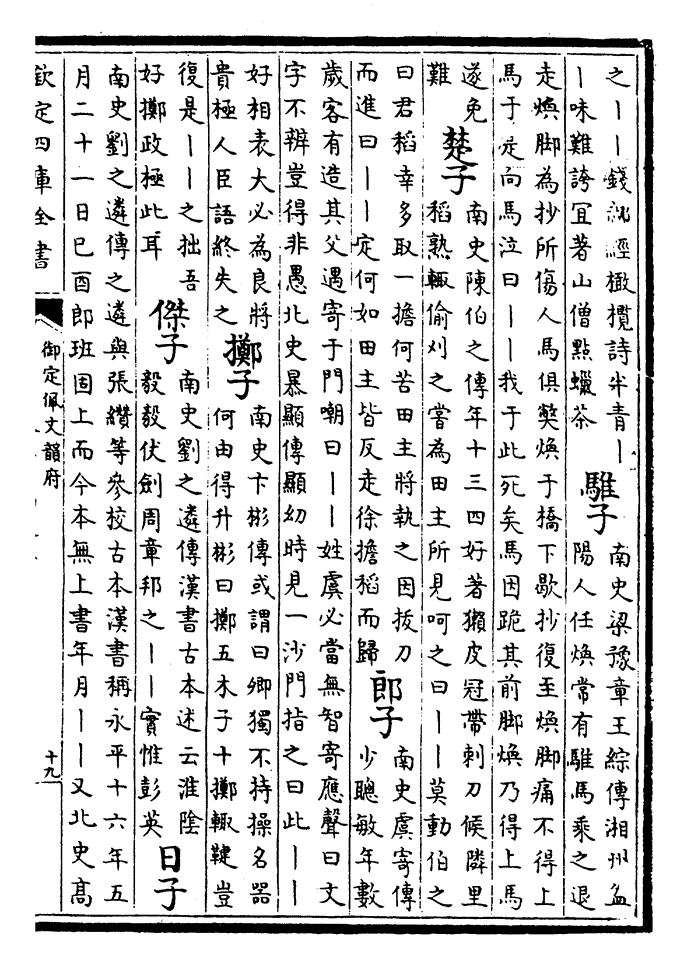 之丨丨錢 經橄欖詩半青丨
丨味難誇冝著山僧點蠟茶
騅子
南史梁豫章王綜傳湘州益
陽人任煥常有騅馬乘之退
走煥脚為抄所傷人馬俱獘煥于橋下歇抄復至煥脚痛不得上
馬于是向馬泣曰丨丨我于此死矣馬因跪其前脚煥乃得上馬
遂免
難
楚子
南史陳伯之傳年十三四好著獺皮冠帶刺刀候隣里
稻熟輙偷刈之嘗為田主所見呵之曰丨丨莫動伯之
曰君稻幸多取一擔何苦田主將執之因拔刀
而進曰丨丨定何如田主皆反走徐擔稻而歸
郎子
南史虞寄傳
少聰敏年數
歲客有造其父遇寄于門嘲曰丨丨姓虞必當無智寄應聲曰文
字不辨豈得非愚北史暴顯傳顯幼時見一沙門指之曰此丨丨
好相表大必為良將
貴極人臣語終失之
擲子
南史卞彬傳或謂曰卿獨不持操名器
何由得升彬曰擲五木子十擲輙鞬豈
復是丨丨之拙吾
好擲政極此耳
傑子
南史劉之遴傳漢書古本述云淮隂
毅毅伏劍周章邦之丨丨實惟彭英
日子
南史劉之遴傳之遴與張纘等參校古本漢書稱永平十六年五
月二十一日巳酉郎班固上而今本無上書年月丨丨又北史髙
欽定四庫全書
御定佩文韻府
十九